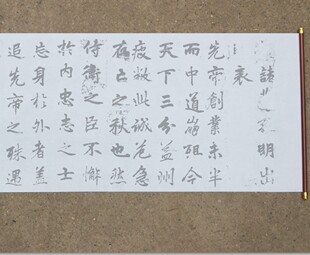 諸明出
表
先帝創業未半
而中道崩殂今
天下三分益州
疲敝此誠危急
存亡之秋也然
侍衛之臣不懈
於內忠志之士
忘身於外者盖
追先帝之殊遇